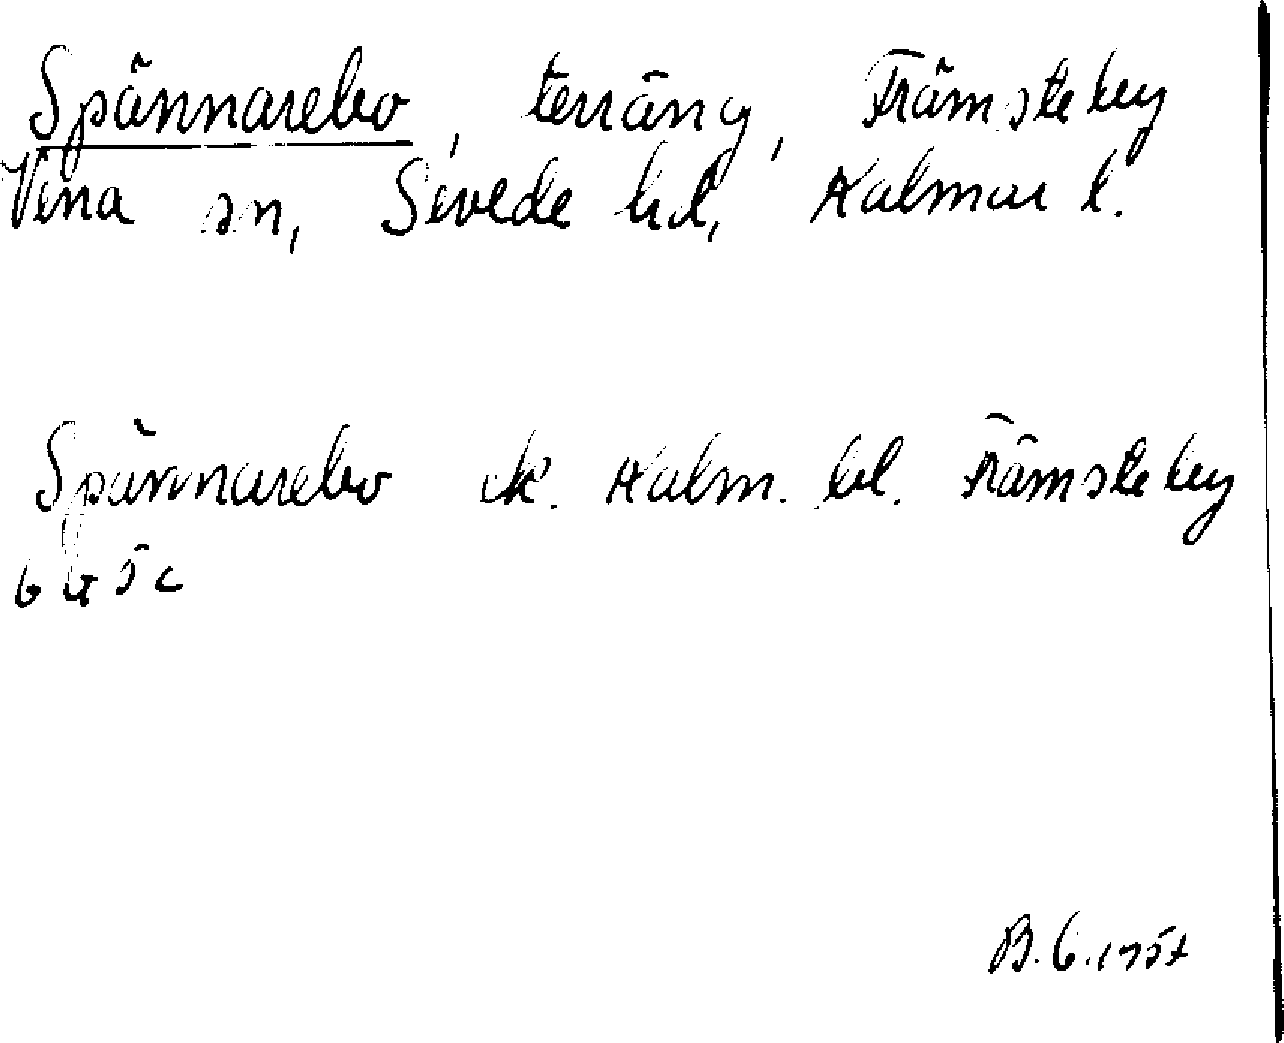 Spännarebo, terräng, Främsteby
Vena sn, Sevede hd, Kalmar l.
Spännarebo ek. Kalm. bl. Främsteby
6 G 5c
B.G. 1957